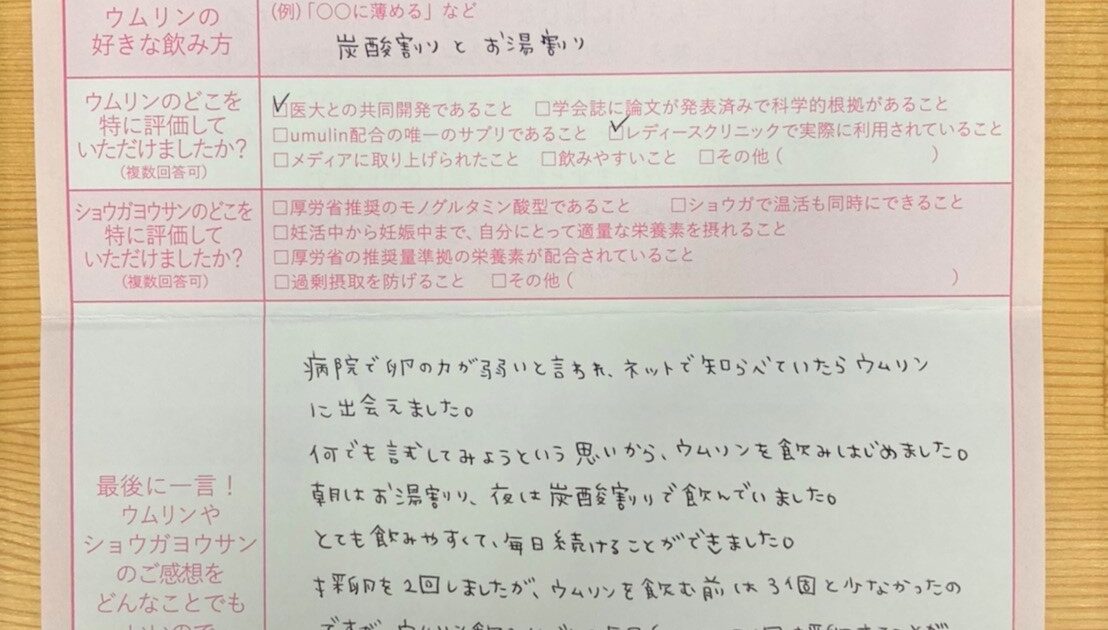 ウムリンの
好きな飲み方
(例)「〇〇に薄める」など
炭酸割りと お湯割り
ウムリンのどこを
特に評価して
いただけましたか?
(複数回答可)
☑医大との共同開発であること □学会誌に論文が発表済みで科学的根拠があること
□umulin配合の唯一のサプリであること ☑レディースクリニックで実際に利用されていること
□メディアに取り上げられたこと □飲みやすいこと □その他( )
ショウガヨウサンのどこを
特に評価して
いただけましたか?
(複数回答可)
□厚労省推奨のモノグルタミン酸型であること □ショウガで温活も同時にできること
□妊活中から妊娠中まで、自分にとって適量な栄養素を摂れること
□厚労省の推奨量準拠の栄養素が配合されていること
□過剰摂取を防げること □その他( )
最後に一言!
ウムリンや
ショウガヨウサン
のご感想を
どんなことでも
いいので
病院で卵の力が弱いと言われ、ネットで知らべていたらウムリン
に出会えました。
何でも試してみようという思いから、ウムリンを飲みはじめました。
朝はお湯割り、夜は炭酸割りで飲んでいました。
とても飲みやすくて、毎日続けることができました。
採卵を2回しましたが、ウムリンを飲む前は3個と少なかったの
ですが、ウムリン飲